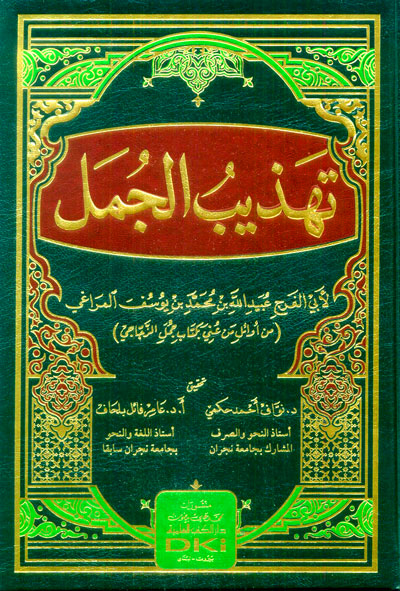 تهذيب الجمل
لأبي الفرج عبيد الله بن محمد بن يوسف المراغي
(من أوائل من عني بكتاب جمل الزجاجي)
تحقيق
د. نواف أحمد حكمي
أستاذ النحو والصرف
المشارك بجامعة نجران
أ. د. عامر فائل بلحاف
أستاذ اللغة والنحو
بجامعة نجران سابقا
منشورات
محمد علي بيضون
دار الكتب العلمية
DKi
بيروت - لبنان